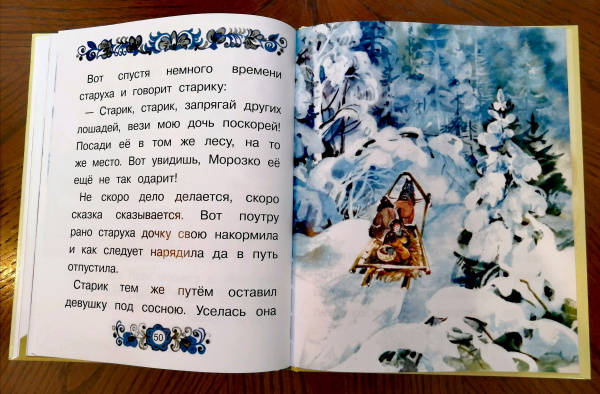 Вот спустя немного времени
старуха и говорит старику:
— Старик, старик, запрягай других
лошадей, вези мою дочь поскорей!
Посади её в том же лесу, на то
же место. Вот увидишь, Морозко её
ещё не так одарит!
Не скоро дело делается, скоро
сказка сказывается. Вот поутру
рано старуха дочку свою накормила
и как следует нарядила да в путь
отпустила.
Старик тем же путём оставил
девушку под сосною. Уселась она
50